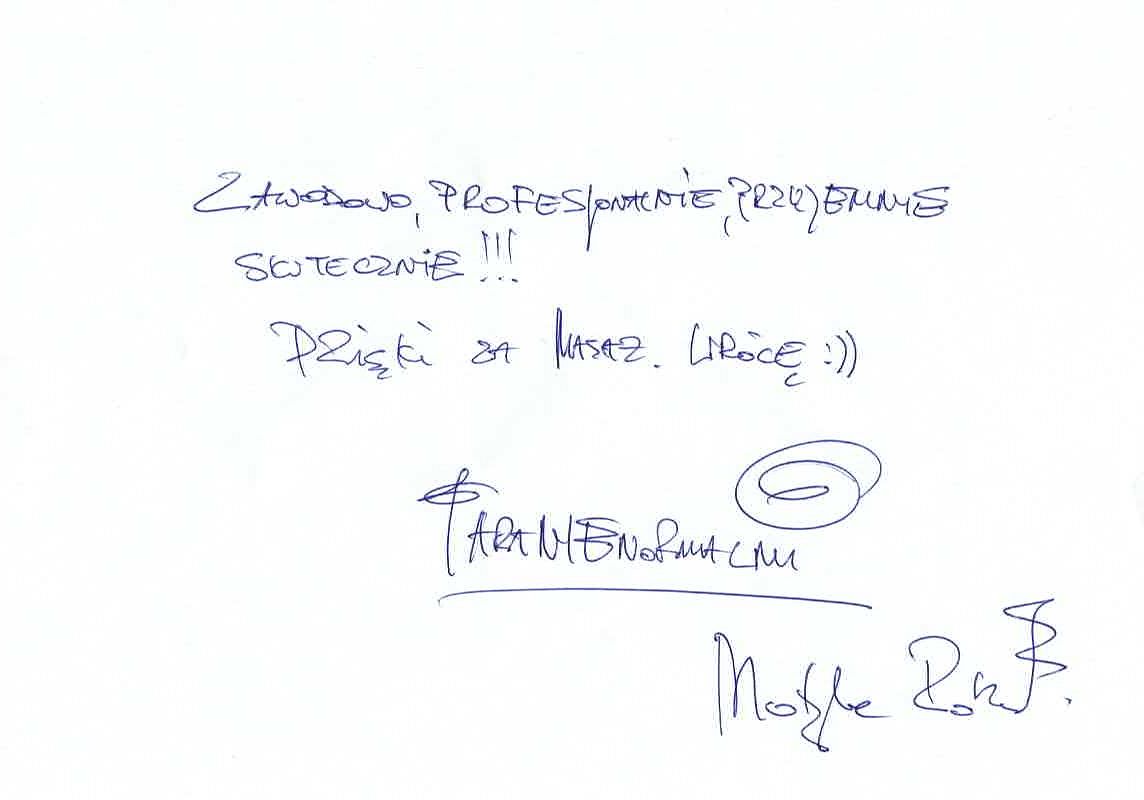 ZAWODOWO, PROFESJONALNIE, PRZYJEMNIE
SKUTECZNIE!!!
DZIĘKI ZA MASAŻ. WRÓCĘ :))
PARANIENORMALNI